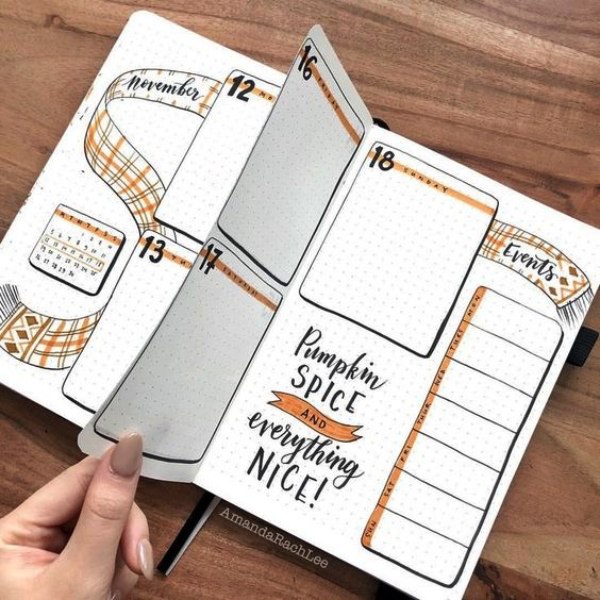 November
12
M T W T F S S
13
16 FRIDAY
17 SATURDAY
18 SUNDAY
Events
MON
TUES
WED
THUR
FRI
SAT
SUN
Pumpkin
SPICE
AND
everything
NICE!
AmandaRachLee